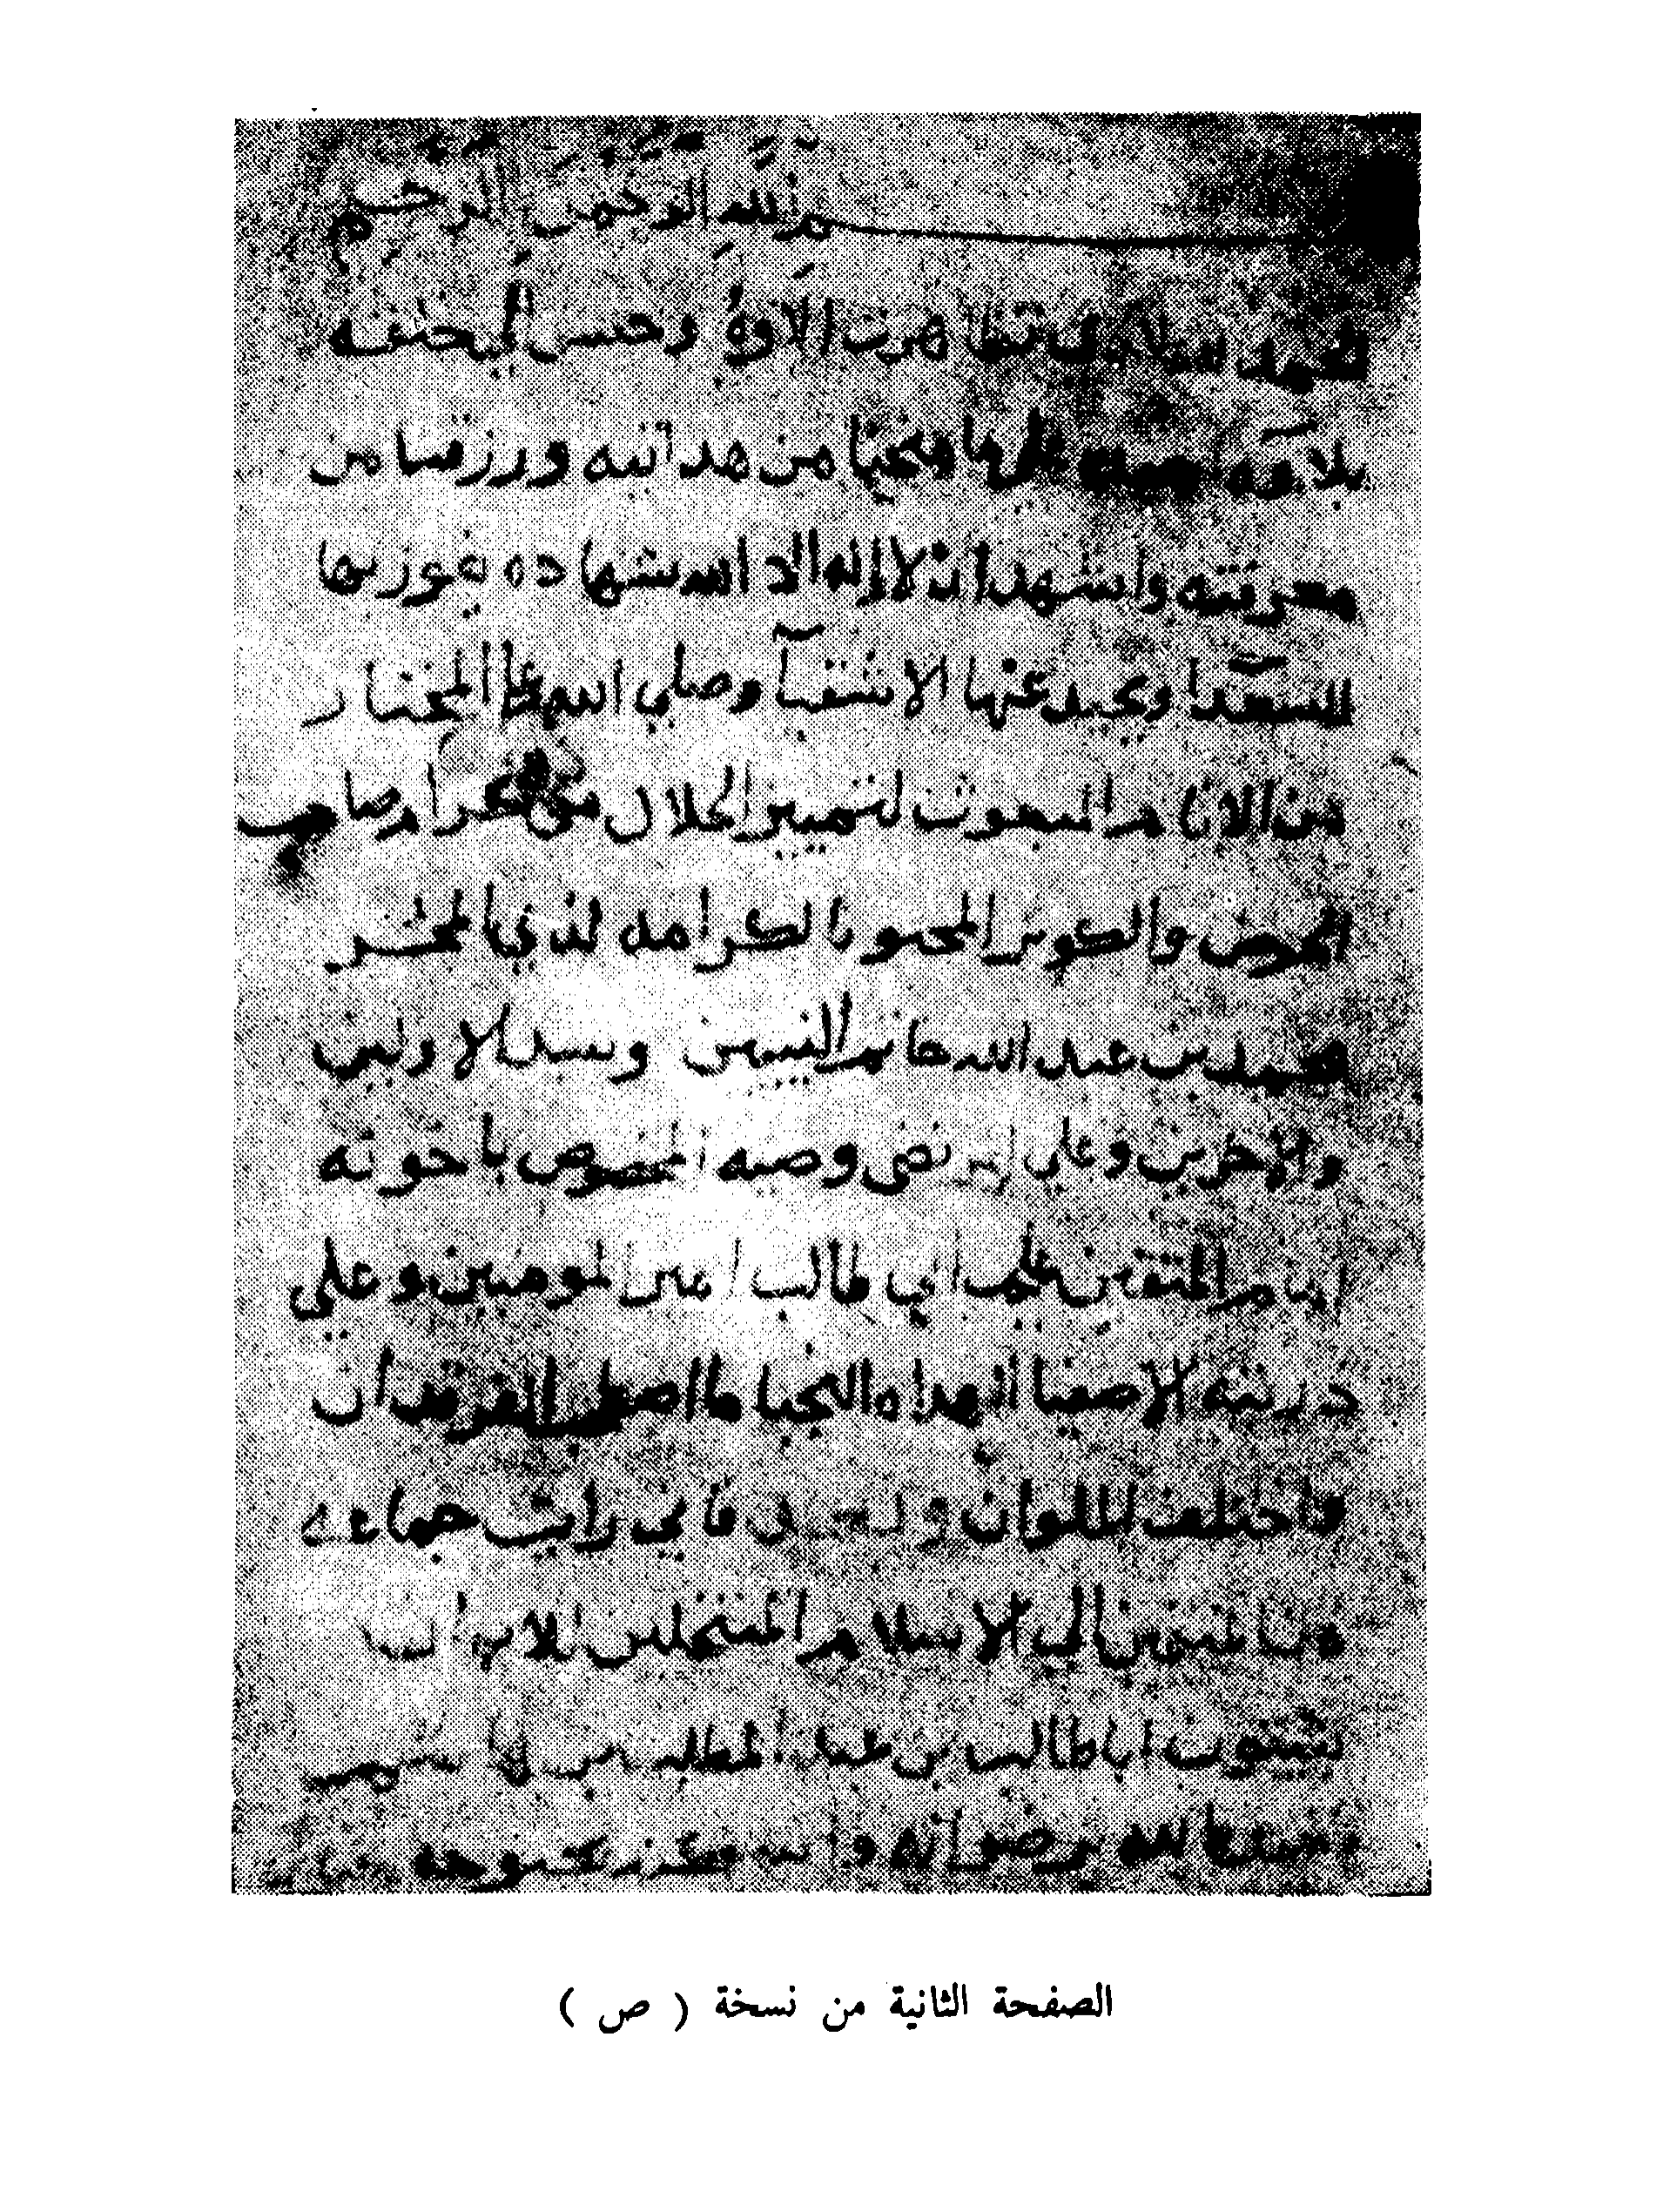 بسم الله الرحمن الرحيم
تظاهرت الاوه وحسن الي خلقه
بلاوه من هدايته ورزقنا من
معرفته واشهد ان لا اله الا الله شهاده يفوز بها
السعدآ ويحيد عنها الاشقيآ وصلى الله على المختار
من الانام المبعوث لتمييز الحلال من الحرام صاحب
الحوض والكوثر المحبو بالكرامه لدي المحشر
محمد بن عبد الله خاتم النبيين وسيد الاولين
والاخرين وعلي المرتضى وصيه المخصوص باخوته
امام المتقين علي بن ابي طالب امير المومنين وعلي
ذريته الاصفيا الهداه النجبا ما اصطحب الفرقدان
واختلف الملوان وبعد فاني رايت جماعه
من المنتمين الي الاسلام المنتحلين
ابا طالب بن عبد المطلب بن هاشم
الله برضوانه
الصفحة الثانية من نسخة ( ص )